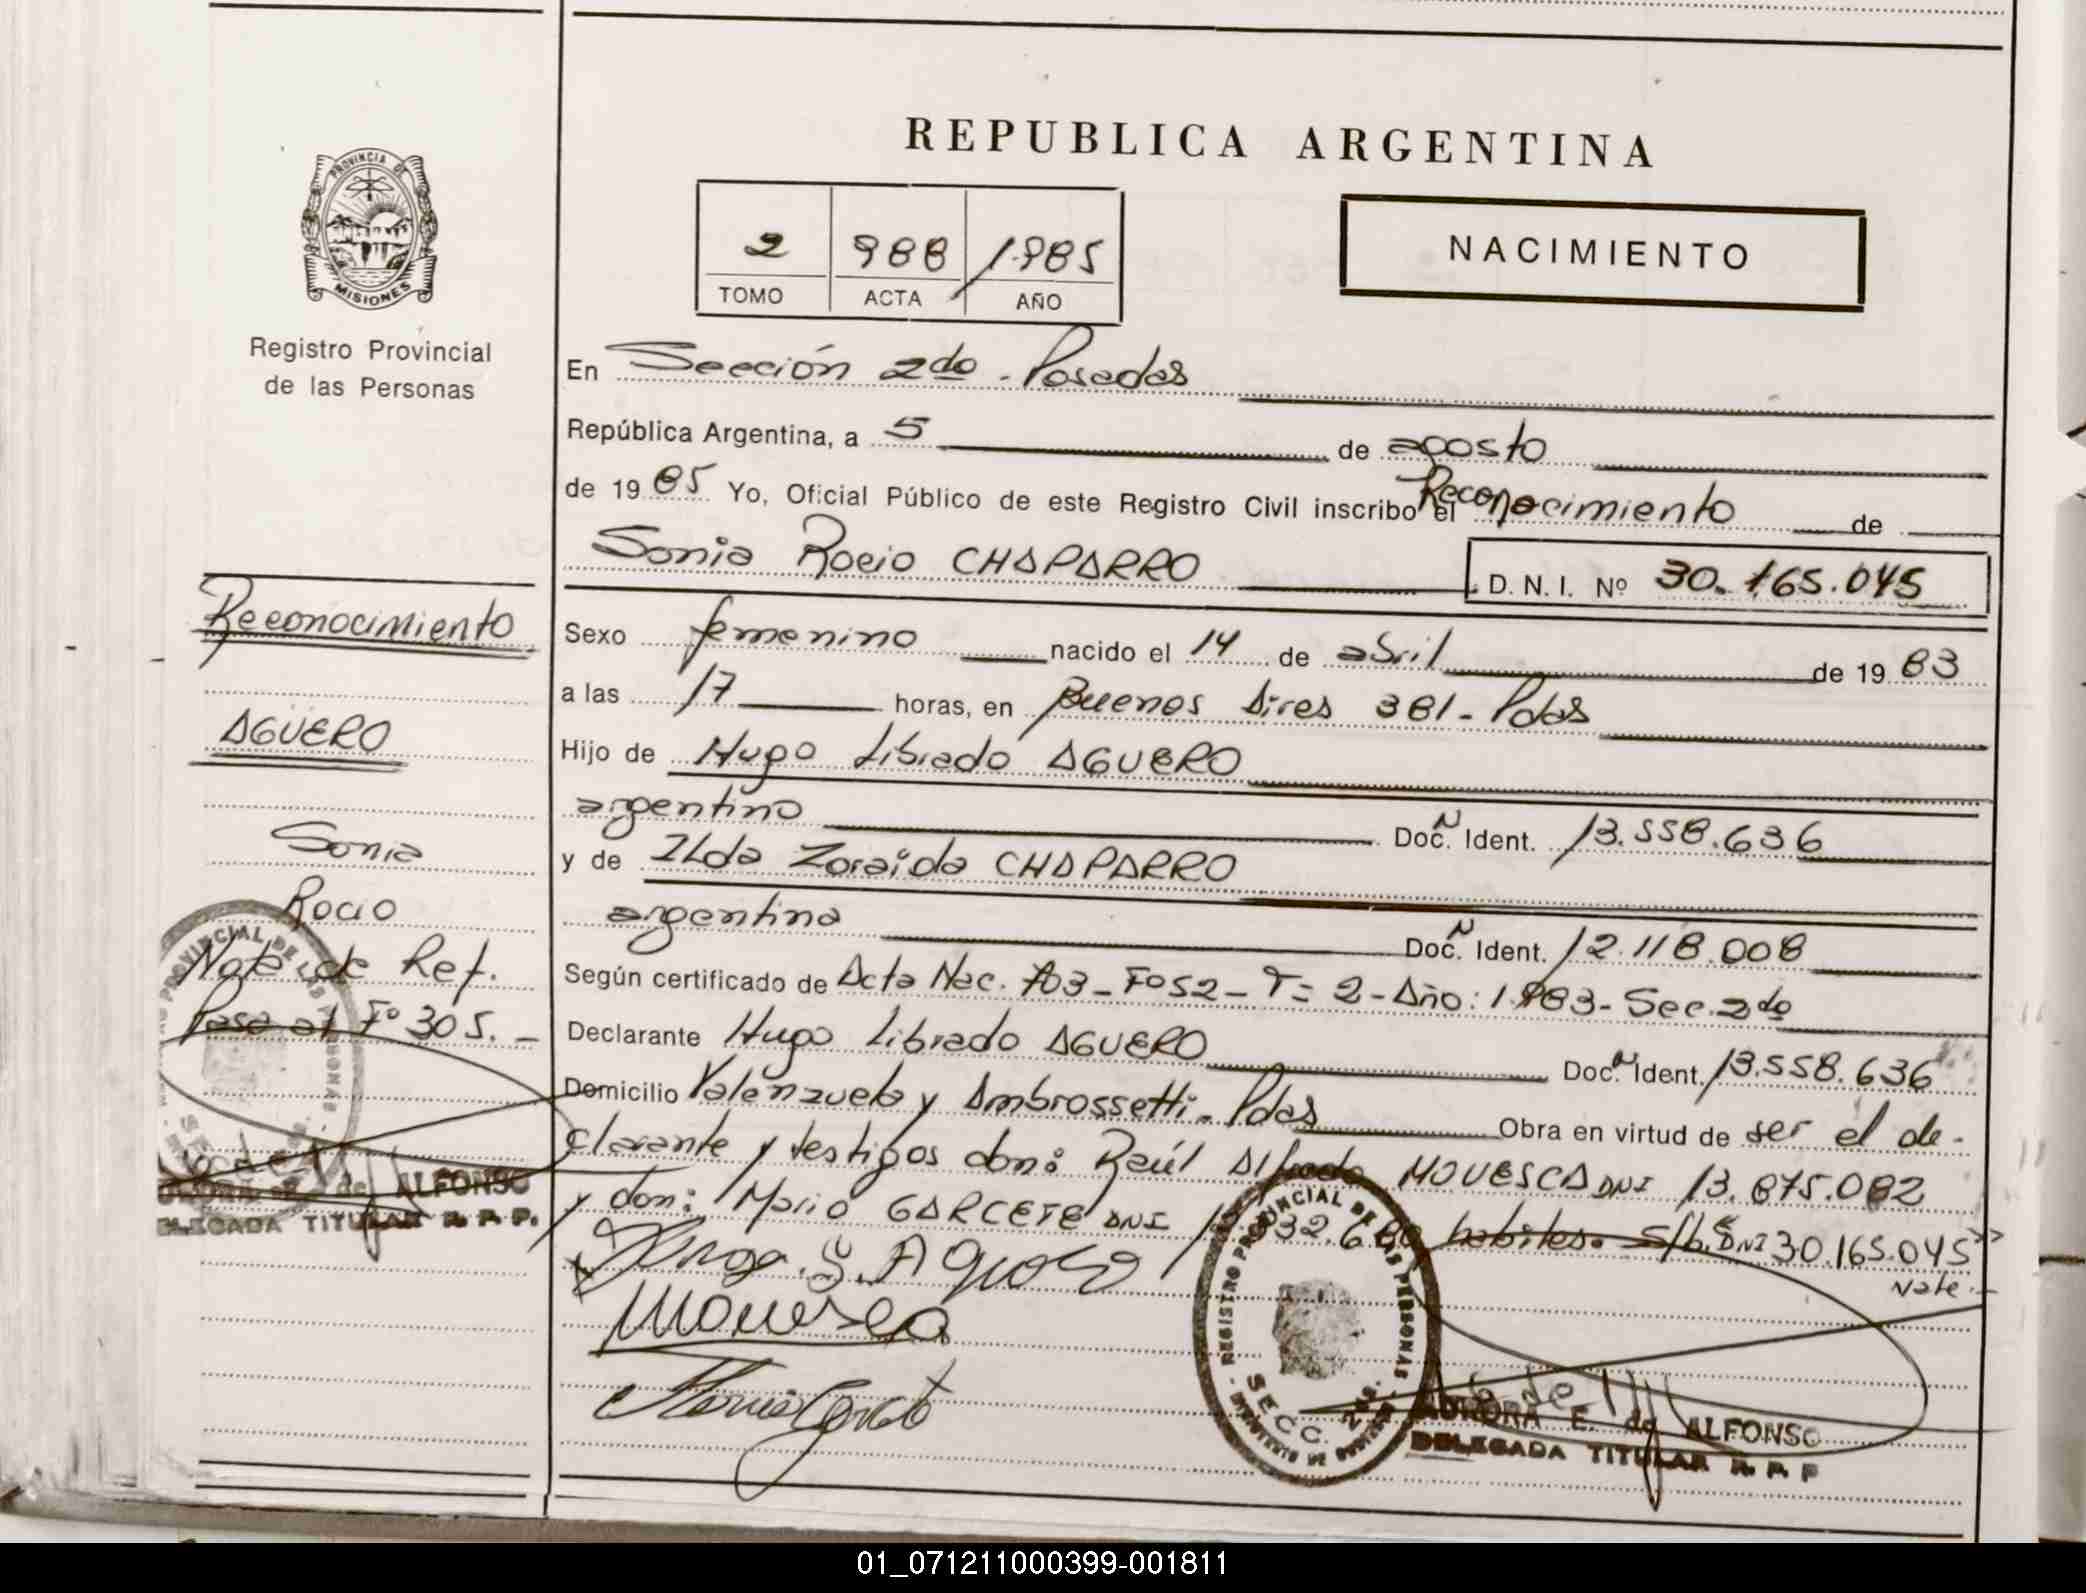 REPUBLICA ARGENTINA
PROVINCIA DE
MISIONES
Registro Provincial
de las Personas
2 988 1.985
TOMO ACTA AÑO
NACIMIENTO
En Sección 2do - Posadas
República Argentina, a 5 de agosto
de 19 85 Yo, Oficial Público de este Registro Civil inscribo el Reconocimiento de
Sonia Rocio CHAPARRO D. N. I. Nº 30.165.045
Sexo femenino nacido el 14 de abril de 19 83
a las 17 horas, en Buenos Aires 381 - Pdas
Hijo de Hugo Librado AGUERO
argentino Doc. N Ident. 13.558.636
y de Ilda Zoraida CHAPARRO
argentina Doc. N Ident. 12.118.008
Según certificado de Acta Nac. 703 - Fº 52 - T= 2 - Año: 1.983 - Sec. 2do
Declarante Hugo Librado AGUERO Doc. N Ident. 13.558.636
Domicilio Valenzuela y Ambrossetti - Pdas Obra en virtud de ser el de-
clarante y testigos don: Raúl Alfredo MOVESCA DNI 13.875.082
y don: Mario GARCETE DNI habiles. S/b. DNI 30.165.045
Vale
Reconocimiento
AGUERO
Sonia
Rocio
Nota de Ref.
Pasa al Fº 305. -
AURORA E. de ALFONSO
DELEGADA TITULAR R. P. P.
REGISTRO PROVINCIAL DE LAS PERSONAS
SECC. 2da.
AURORA E. de ALFONSO
DELEGADA TITULAR R. P. P
01_071211000399-001811